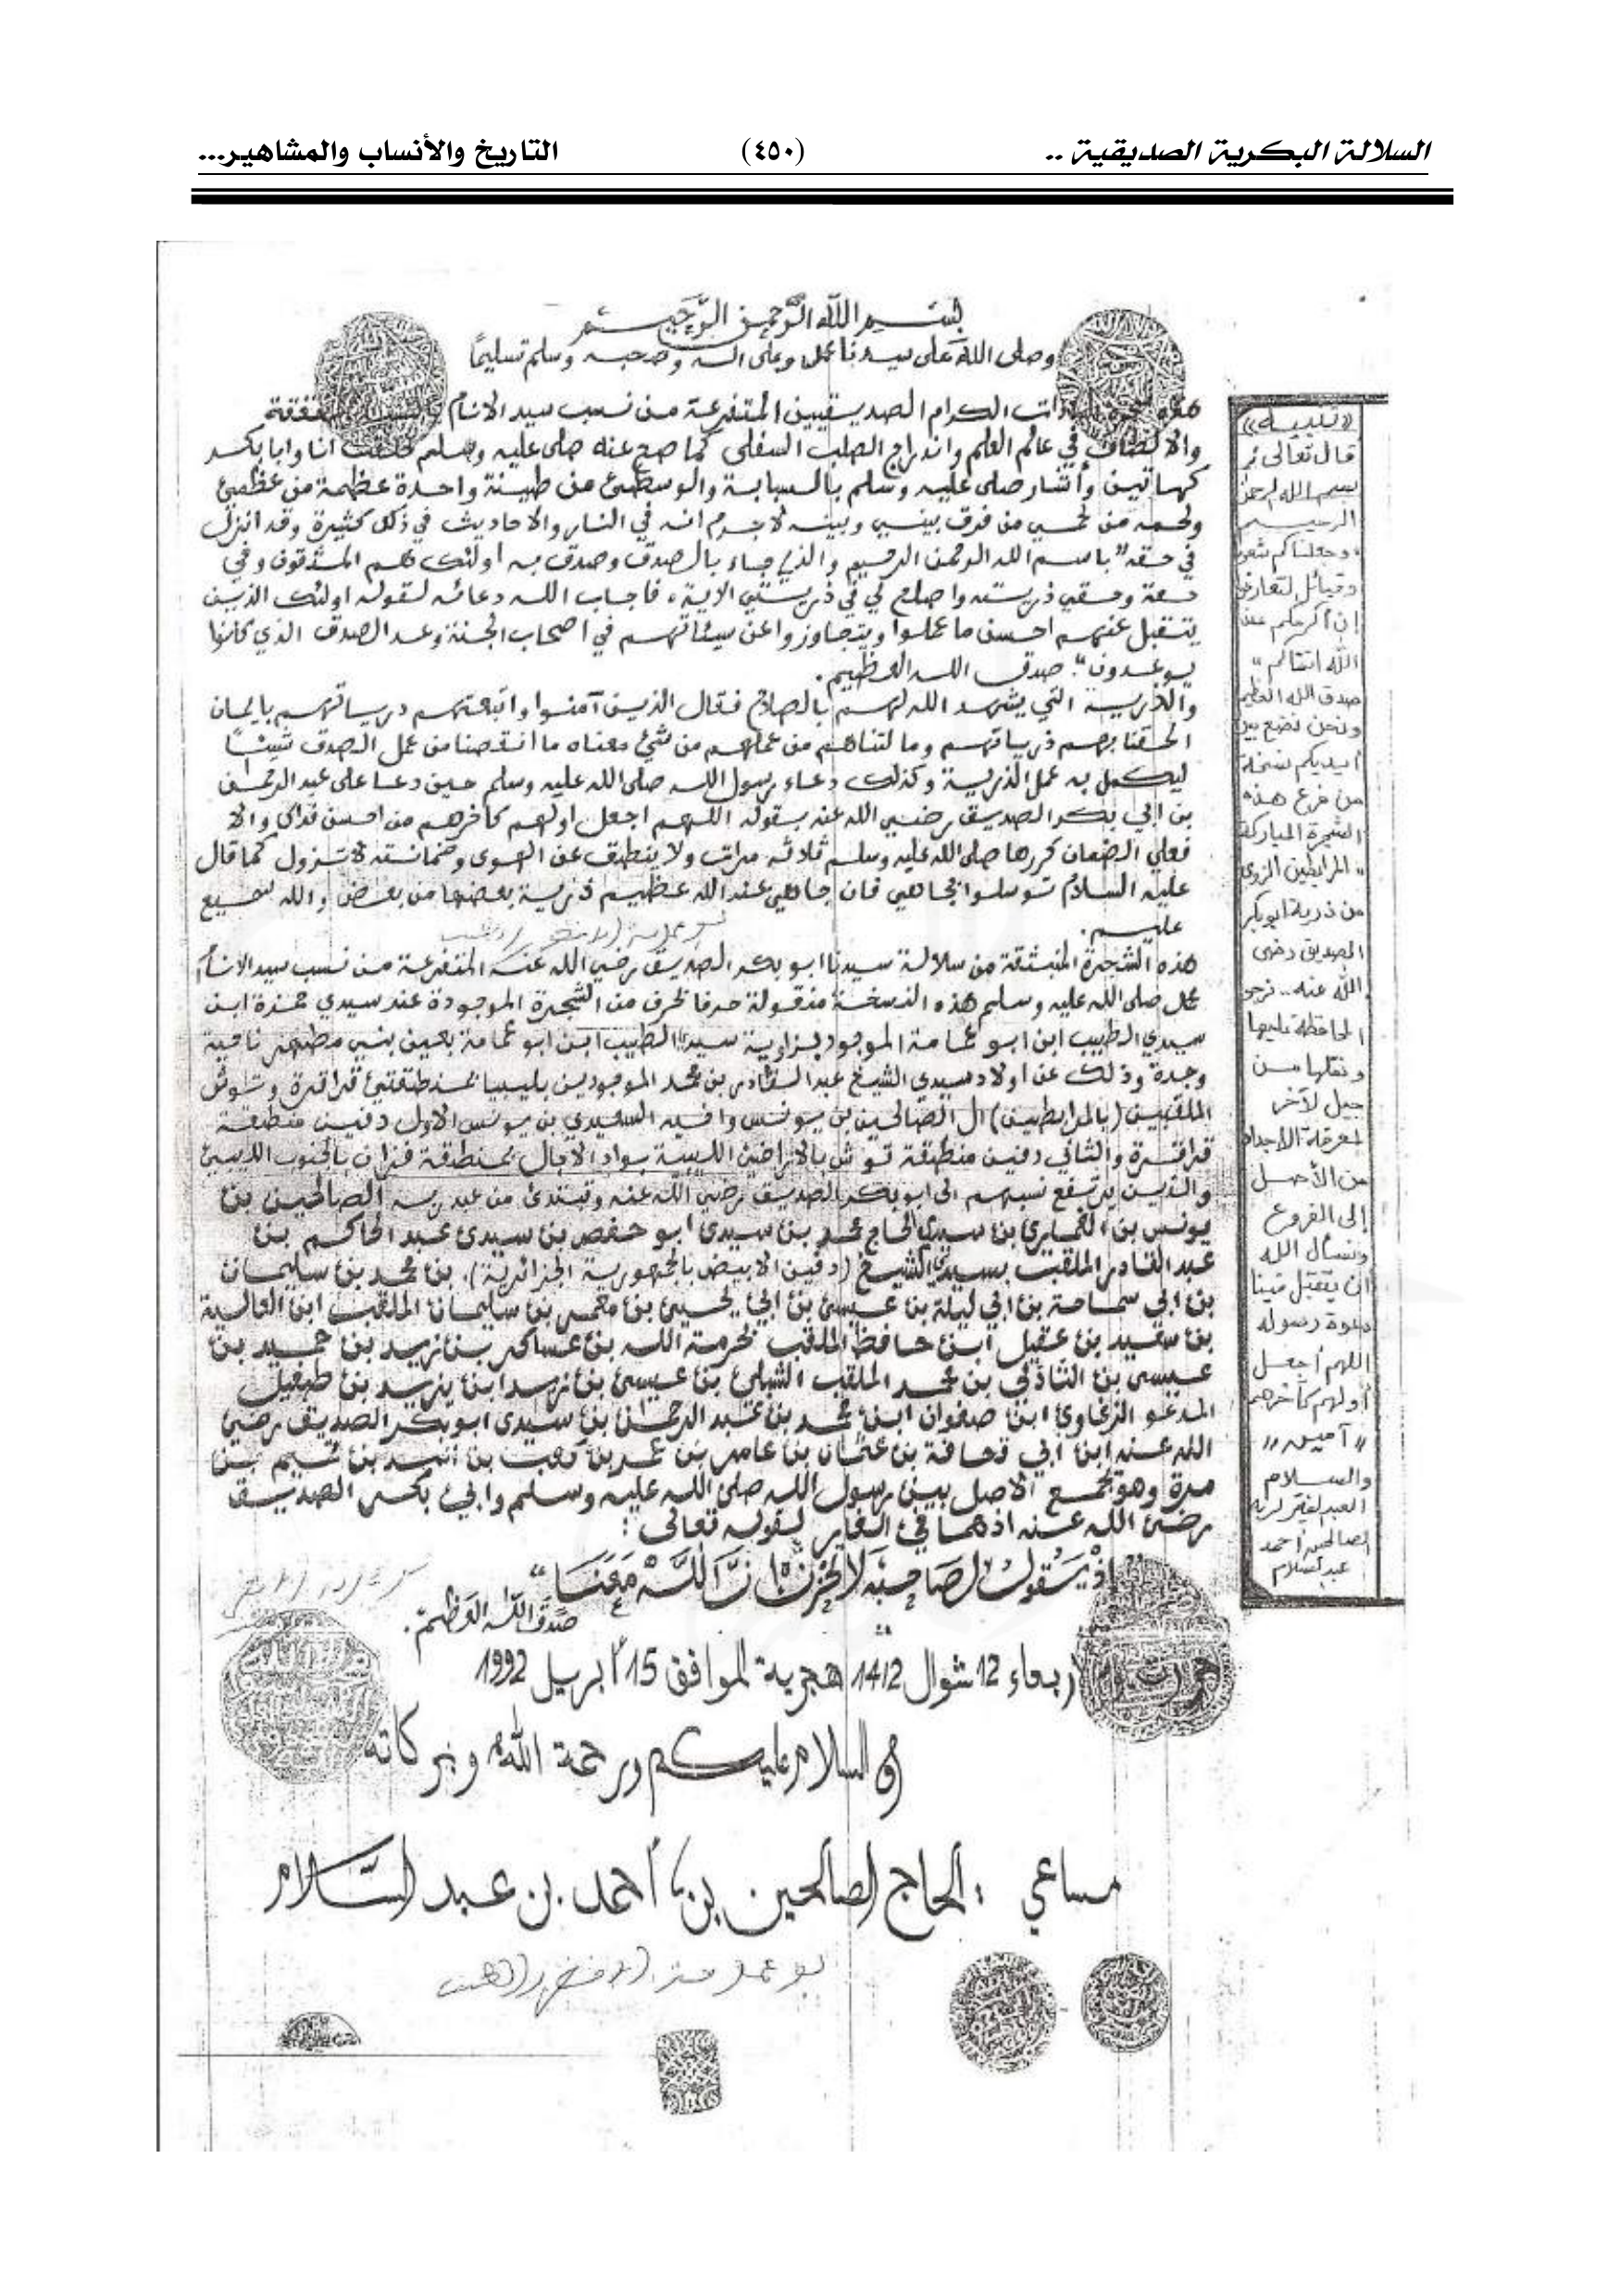 السلالة البكرية الصديقية ..
(٤٥٠)
التاريخ والأنساب والمشاهير...
بسم الله الرحمن الرحيم
وصلى الله على سيدنا محمد وعلى اله وصحبه وسلم تسليماً
هذه شجرة السادات الكرام الصديقيين المتفرعة من نسب سيد الانام
في عالم العلم واندراج الصلب السفلى كما صح عنه صلى عليه وسلم خلقت انا وابا بكر
كهاتين وأشار صلى عليه وسلم بالسبابة والوسطى من طينة واحدة عظمه من عظمي
ولحمه من لحمي من فرق بيني وبينه لا جرم انه في النار والاحاديث في ذلك كثيرة وقد انزل
في حقه "باسم الله الرحمن الرحيم والذي جاء بالصدق وصدق به اولئك هم المتقون وفي
حقه وحقي ذريته واصلح لي في ذريتي الاية، فاجاب الله دعائه لقوله اولئك الذين
يتقبل عنهم احسن ما عملوا ويتجاوزوا عن سيئاتهم في اصحاب الجنة وعد الصدق الذي كانوا
يوعدون" صدق الله العظيم.
والذرية التي يشهد الله لهم بالصلاح فقال الذين آمنوا واتبعتهم درياتهم بايمان
الحقنا بهم ذرياتهم وما لتناهم من عملهم من شيء معناه ما انقصنا من عمل الصدق شيئاً
ليكمل به عمل الذرية وكذلك دعاء رسول الله صلى الله عليه وسلم حين دعا على عبد الرحمان
بن ابي بكر الصديق رضي الله عنه بقوله اللهم اجعل اولهم كاخرهم من احسن
فعلي الضمان كررها صلى الله عليه وسلم ثلاثه مرات ولا ينطق عن الهوى وضمانته لا تزول كما قال
عليه السلام توسلوا بجاهي فان جاهي عند الله عظيم ذرية بعضها من بعض والله سميع
عليم.
هذه الشجرة المنبثقة من سلالة سيدنا ابو بكر الصديق رضي الله عنه المتفرعة من نسب سيد الانام
محمد صلى الله عليه وسلم هذه النسخة منقولة حرفا بحرف من الشجرة الموجودة عند سيدي حمزة ابن
سيدي الطيب ابن ابو عمامة الموجود بزاوية سيدي الطيب ابن ابو عمامة بعين بني مطهر ناحية
وجدة وذلك عن اولاد سيدي الشيخ عبد القادر بن محمد الموجودين بليبيا بمنطقتي قراقرة وتوش
الملقبين (بالمرابطين) ال الصالحين بن يونس واخيه السعيدي بن يونس الاول دفين منطقة
قراقرة والثاني دفين منطقة توش بالاراضي الليبية بواد الاجال بمنطقة فزان بالجنوب الليبي
والذين يرتفع نسبهم الى ابو بكر الصديق رضي الله عنه وتبتدئ من عبد ربه الصالحين بن
يونس بن الغماري بن سيدي الحاج محمد بن سيدي ابو حفص بن سيدي عبد الحاكم بن
عبد القادر الملقب بسيدي الشيخ (دفين الابيض بالجمهورية الجزائرية). بن محمد بن سليمان
بن ابي سماحة بن ابي ليلة بن عيسى بن ابي يحيى بن معمر بن سليمان الملقب ابن العالية
بن سعيد بن عقيل ابن حافظ الملقب بحرمة الله بن عساكر بن زيد بن حميد بن
عيسى بن الثاذلي بن محمد الملقب الشبلي بن عيسى بن زيد ابن يزيد بن طفيل
المدعو الزغاوي ابن صفوان ابن محمد بن عبد الرحمان بن سيدي ابو بكر الصديق رضي
الله عنه ابن ابي قحافة بن عثمان بن عامر بن عمر بن كعب بن اسد بن تميم بن
مرة وهو مجمع الاصل بين رسول الله صلى الله عليه وسلم وابي بكر الصديق
رضي الله عنه اذ هما في الغار لقوله تعالى :
اذ يقول لصاحبه لا تحزن ان الله معنا"
صدق الله العظيم.
اربعاء 12 شوال 1412 هجرية الموافق 15 ابريل 1992
والسلام عليكم ورحمة الله وبركاته
مساعي : الحاج الصالحين بن أحمد بن عبد السلام
«تنبيه»
قال تعالى
بسم الله الرحمن
الرحيم
"وجعلناكم شعوبا
وقبائل لتعارفوا
إن أكرمكم عند
الله اتقاكم"
صدق الله العظيم
ونحن نضع بين
أيديكم نسخة
من فرع هذه
الشجرة المباركة
"المرابطين الزوى
من ذرية ابوبكر
الصديق رضى
الله عنه.. نرجو
المحافظة عليها
ونقلها من
جيل لآخر
لمعرفة الأجداد
من الأصل
إلى الفروع
ونسأل الله
أن يتقبل منا
دعوة رسوله
اللهم أجعل
أولهم كآخرهم
"آمين"
والسلام
العبد لفقير لربه
الصالحين أحمد
عبد السلام